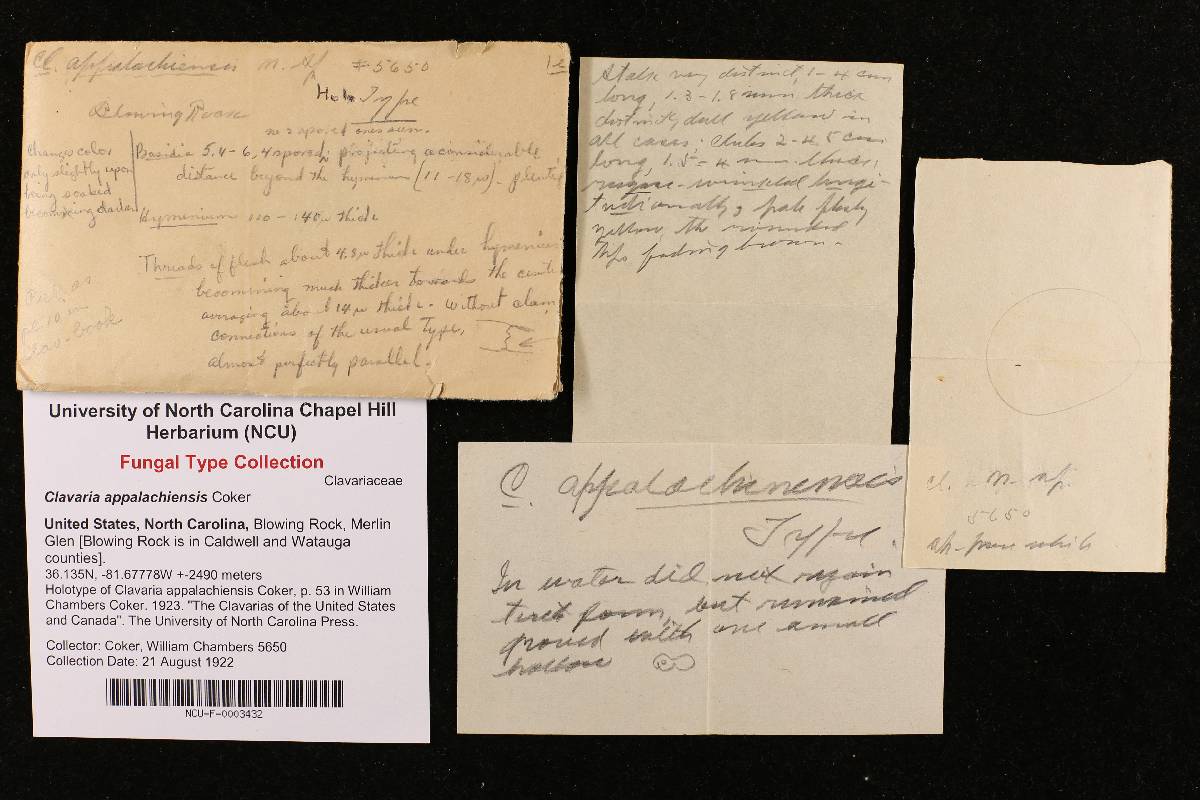 Cl. appalachiensis n. sp #5650
Holo Type
Blowing Rock
no 2 spored ones seen.
Changes color
only slightly upon
being soaked
becoming darker
Basidia 5.4-6, 4 spored, projecting a considerable
distance beyond the hymenium (11-18 µ). plentiful
Hymenium 110-140µ thick
Threads of flesh about 4.8µ thick under hymenium
becoming much thicker towards the center
averaging about 14µ thick. without clamp
connections of the usual type,
almost perfectly parallel.
Pub. as
pl 10 in
Clav-book
Stalk very distinct, 1-4 cm
long, 1.3-1.8 mm thick
distinctly dull yellow in
all cases; clubs 2-4.5 cm
long, 1.5-4 mm thick;
rugose-wrinkled longi-
tudionally; pale fleshy
yellow, the rounded
tips fading brown.
Cl. n. sp.
5650
sp-pure white
C. appalachienensis
Type.
In water did not regain
their form, but remained
grooved with one small
hollow
University of North Carolina Chapel Hill
Herbarium (NCU)
Fungal Type Collection
Clavariaceae
Clavaria appalachiensis Coker
United States, North Carolina, Blowing Rock, Merlin
Glen [Blowing Rock is in Caldwell and Watauga
counties].
36.135N, -81.67778W +-2490 meters
Holotype of Clavaria appalachiensis Coker, p. 53 in William
Chambers Coker. 1923. "The Clavarias of the United States
and Canada". The University of North Carolina Press.
Collector: Coker, William Chambers 5650
Collection Date: 21 August 1922
NCU-F-0003432